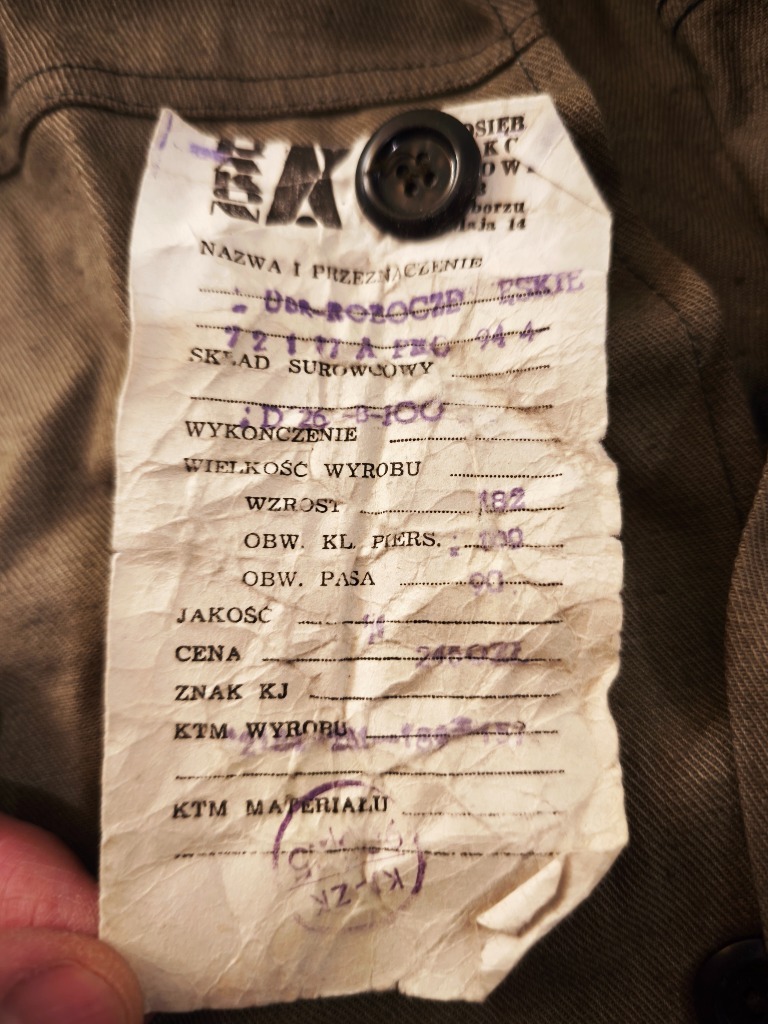 OSIĘB
KC
OW.
borzu
aja 14
NAZWA I PRZEZNACZENIE
UBR-ROBOCZE ĘSKIE
72 1 17 A PKO 94 4
SKŁAD SUROWCOWY
: D 26 -B-100
WYKOŃCZENIE
WIELKOŚĆ WYROBU
WZROST 182
OBW. KL. PIERS. :
OBW. PASA 90
JAKOŚĆ
CENA
ZNAK KJ
KTM WYROBU
KTM MATERIAŁU